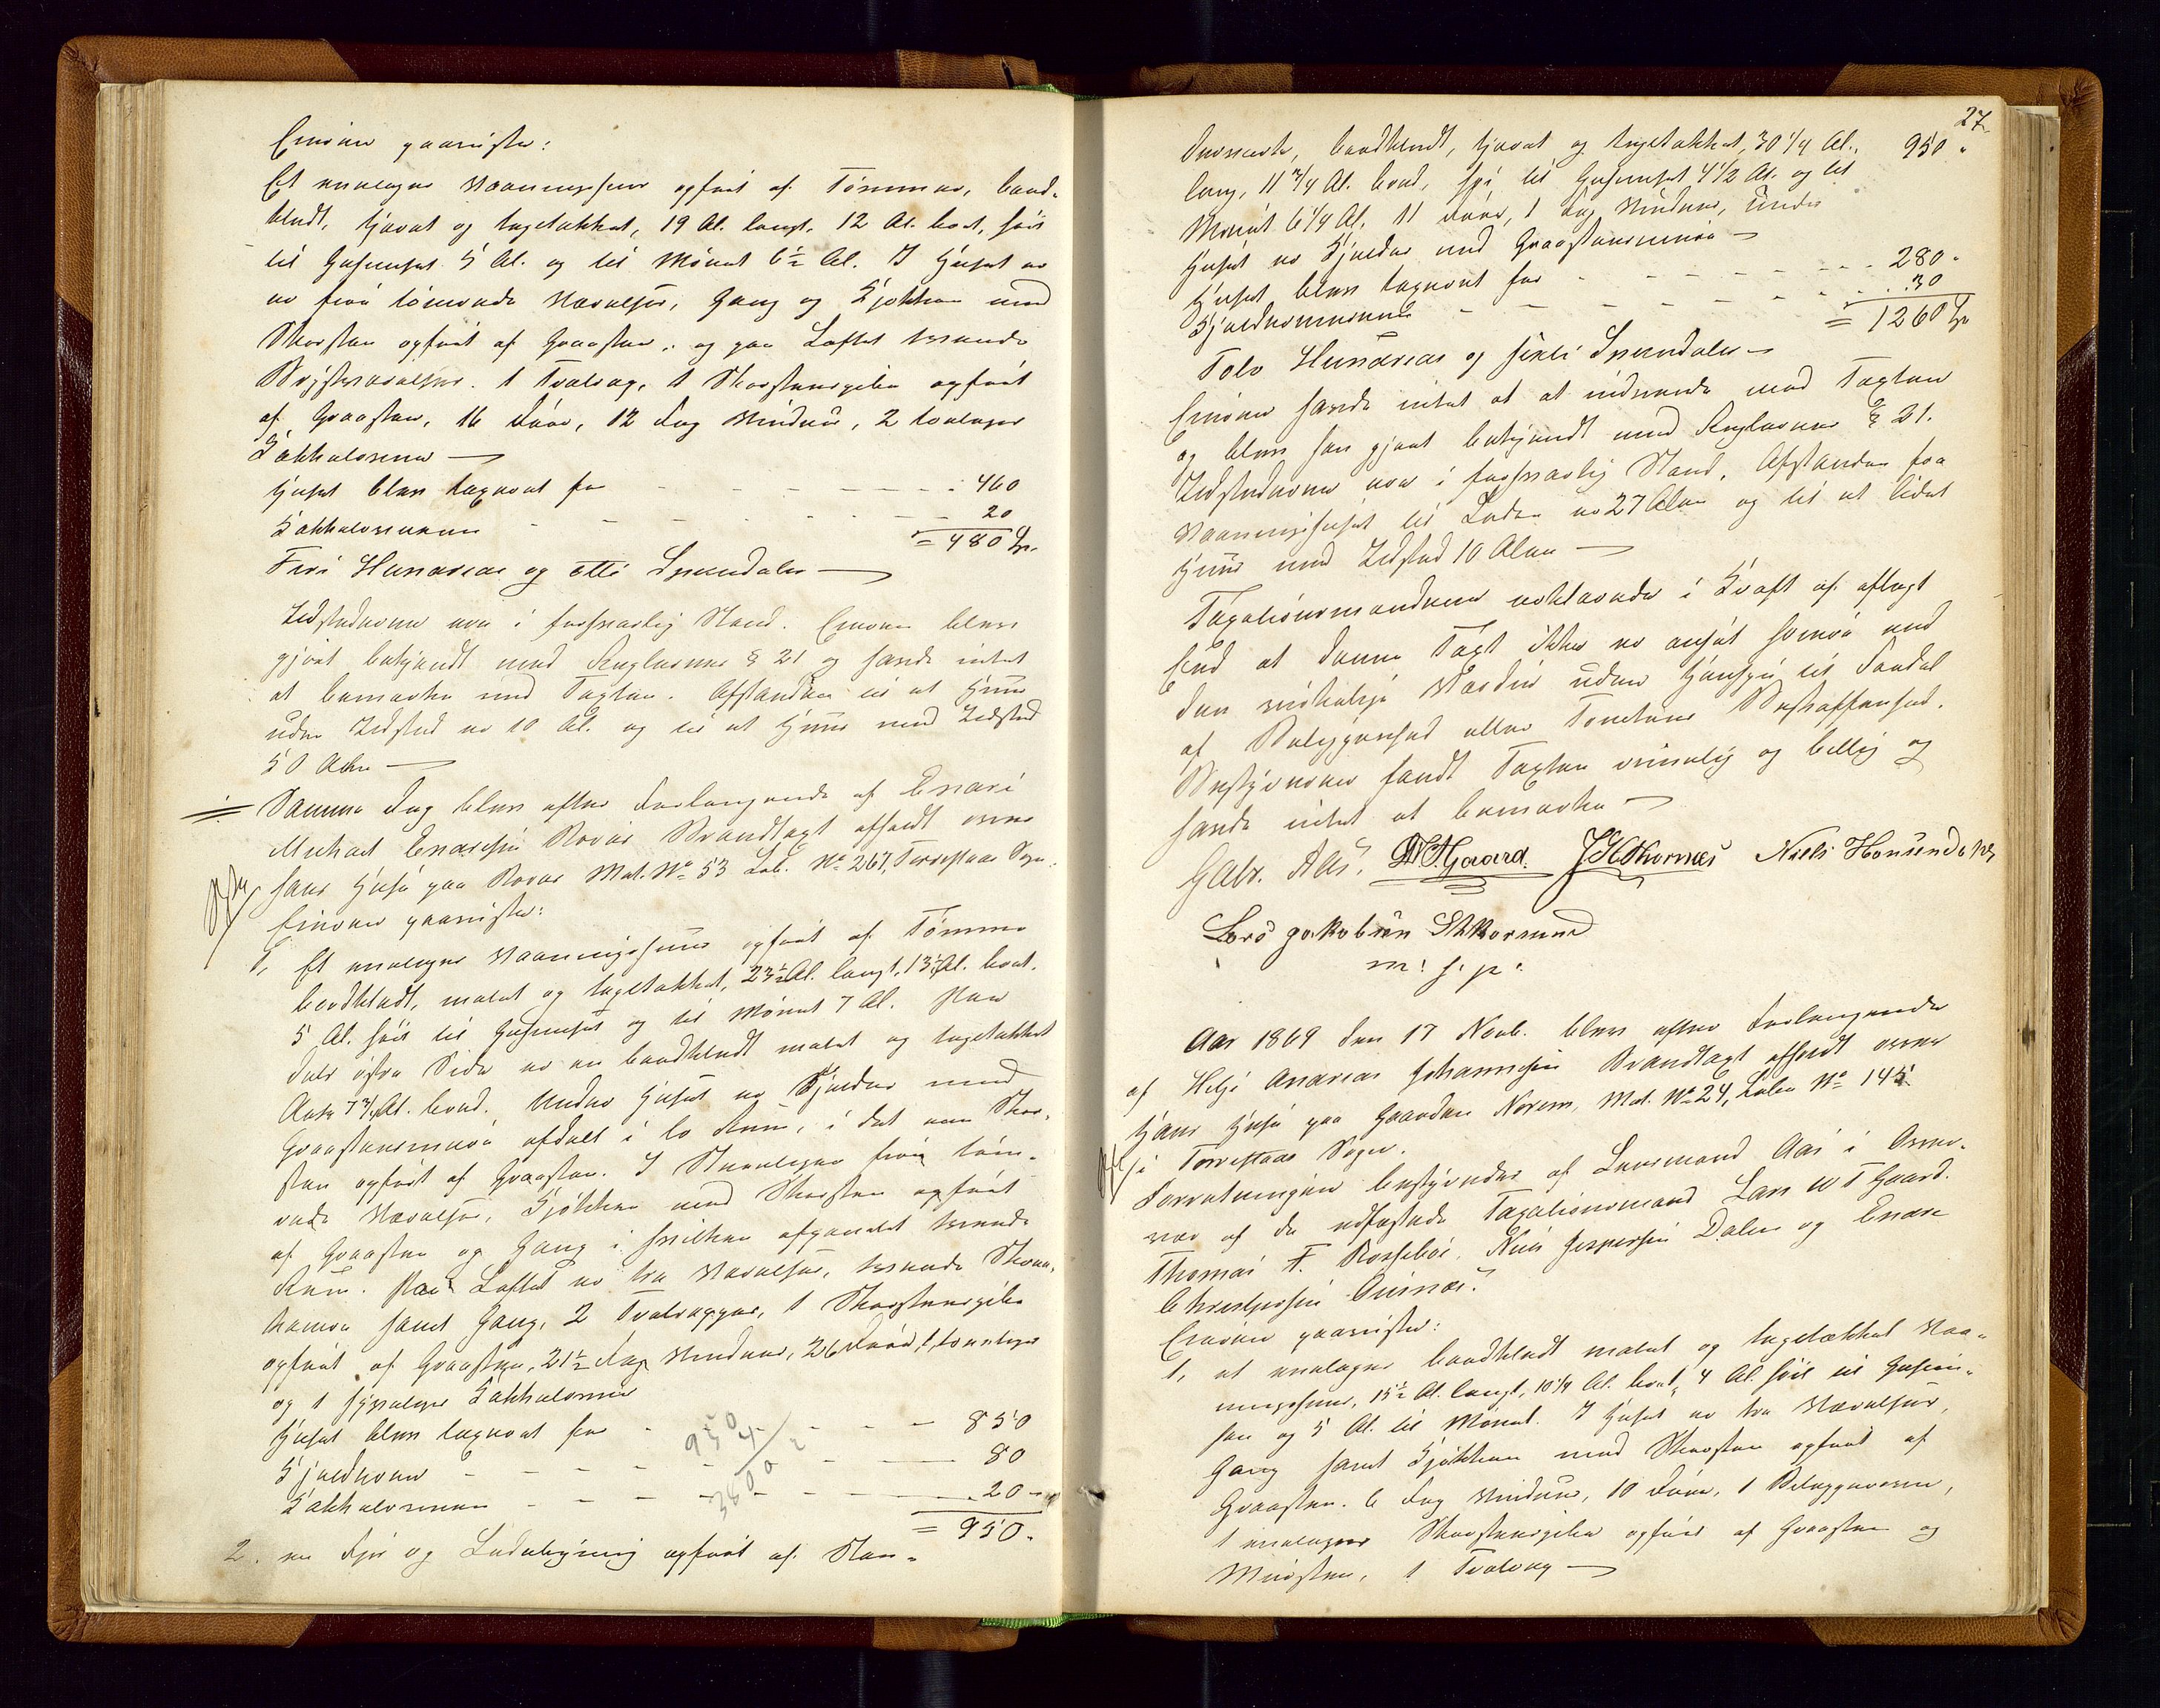 Eieren paaviste:
Et enetages Vaaningshuus opført af Tømmer, bord-
klædt, tjæret og tagetækket, 19 Al. langt, 12 Al. bret, høit
til Gesimset 5 Al. og til Mønet 6½ Al. I Huset er
er fire tømrede Værelser, Gang og Kjøkken med
Skorsten opført af Graasten, og paa Loftet tvende
Brystværelser. 1 Trælong, 1 Skorstenspibe opført
af Graasten, 16 Døre, 12 Fag Vinduer, 2 toetages
Kakkelovne
Huset blev taxeret for 460
Kakkelovnene 20
= 480 Spd.
Fire Hundrede og Otti Speciedaler
Ildstederne ere i forsvarlig Stand. Eieren blev
gjort bekjendt med Reglernes § 21 og havde intet
at bemærke mod Taxten. Afstanden til et Huus
uden Ildsted er 10 Al. og til et Huus med Ildsted
50 Alen
Samme Dag blev efter Forlangende af Enari
Michael Enaresen Rovær Brandtaxt afholdt over
hans Huse paa Rovær Mat. No 53 Løb. No 267, Torvestad Sogn.
Eieren paaviste:
1, Et enetages Vaaningshuus opført af Tømmer
bordklædt, malet og tagetækket, 23½ Al. langt, 13½ Al. bret,
5 Al. høit til Gesimset og til Mønet 7 Al. Ved
dets østre Side er en bordklædt malet og tagetækket
7¾ Al. bred. Under Huset er Kjelder med
Graastensmure afdelt i to Rum, i det ene Skor-
sten opført af Graasten. I Stueetagen fire tøm-
rede Værelser, Kjøkken med Skorsten opført
af Graasten og Gang i hvilken afpanelet tvende
Rum. Paa Loftet er tre Værelser, tvende
samt Gang, 2 Traltrapper, 1 Skorstenspibe
opført af Graasten, 21½ Fag Vinduer, 26 Døre, 1 toetages
og 1 Kakkelovne
Huset blev taxeret for 850
Kjelderen 80
Kakkelovnene 20
= 950.
2. en og Ladebygning opført af Stav-
27.
bordklædt, tjæret og tagetækket, 30 1/4 Al. 950.
lang, 11 3/4 Al. bred, høi til Gesimset 4 1/2 Al. og til
Mønet 6 1/4 Al, 11 Døre, 1 Fag Vinduer, under
Huset er Kjelder med Graastensmure
Huset blev taxeret for 280.
Kjeldermurene 30
= 1260 Spd
Tolv Hundrede og Sexti Speciedaler
Eieren havde intet at indvende mod Taxten
og blev han gjort bekjendt med Reglernes § 21.
Ildstederne ere i forsvarlig Stand. Afstanden fra
Vaaningshuset til Laden er 27 Alen og til et lidet
Huus med Ildsted 10 Alen
Taxationsmændene erklærede i Kraft af aflagt
Eed at denne Taxt ikke er ansat høiere end
den virkelige Værdie uden Hensyn til Fordel
af Beliggenhed eller Tomtens Beskaffenhed.
Bestyreren fandt Taxten rimelig og billig og
havde intet at bemærke
GAbr. Aas. DTGaard. JHThornæs Niels
Lars Jakobsen
m. f. p.
Aar 1869 den 17 Novb. blev efter Forlangende
af Helje Andreas Johannesen Brandtaxt afholdt over
hans Huse paa Gaarden Norem, Mat. No 24, Løbe No 145
i Torvestad Sogn.
Forretningen bestyredes af Lensmand Aas i Over-
vær af de edfæstede Taxationsmænd Lars W T Gaard.
Thomas T. Rossebø, Niels Jespersen Dalen og Enare
Christophersen
Eieren paaviste:
1, et enetages bordklædt malet og tagetækket Vaa-
ningshuus, 15½ Al. langt, 10 1/4 Al. bret, 4 Al. høit til Gesim-
sen og 5 Al. til Mønet. I Huset er tre Værelser,
Gang samt Kjøkken med Skorsten opført af
Graasten. 6 Fag Vinduer, 10 Døre, 1 Bilæggerovn,
1 enetages Skorstenspibe opført af Graasten og
Muursten, 1 Trælong
950
4
3800